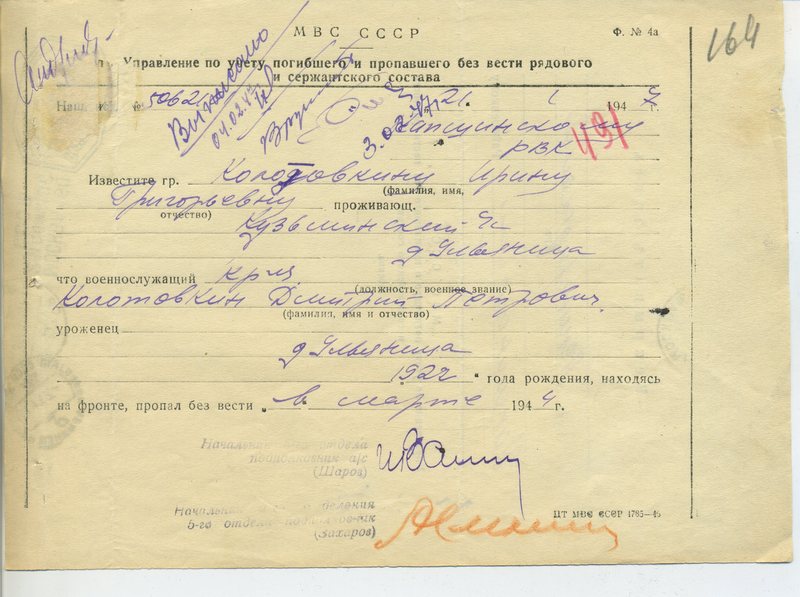 МВС СССР
Ф. № 4а
164
Управление по учету погибшего и пропавшего без вести рядового
и сержантского состава
Выписано
04.02.47
3.02.47
№ 50621
21 1 1947 г.
Сапсинскому
РВК
491
Известите гр. Колотовкину Ирину
(фамилия, имя,
Григорьевну проживающ.
отчество)
Кузьминский
д Ульяница
что военнослужащий кр-ц
(должность, военное звание)
Колотовкин Дмитрий Петрович
(фамилия, имя и отчество)
уроженец
д Ульяница
192 года рождения, находясь
на фронте, пропал без вести „ в марте 1944 г.
Начальник отдела
подполковник а/с
(Шаров)
Начальник отделения
5-го отдела подполковник
(Захаров)
ЦТ МВС СССР 4785-46